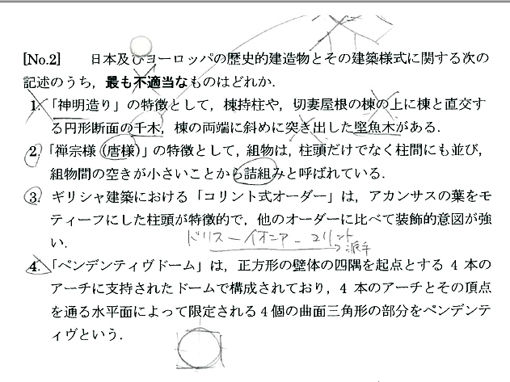 [No.2]　日本及びヨーロッパの歴史的建造物とその建築様式に関する次の
記述のうち，最も不適当なものはどれか。
1.「神明造り」の特徴として，棟持柱や，切妻屋根の棟の上に棟と直交す
る円形断面の千木，棟の両端に斜めに突き出した堅魚木がある。
2.「禅宗様（唐様）」の特徴として，組物は，柱頭だけでなく柱間にも並び，
組物間の空きが小さいことから詰組みと呼ばれている。
3. ギリシャ建築における「コリント式オーダー」は，アカンサスの葉をモ
ティーフにした柱頭が特徴的で，他のオーダーに比べて装飾的意図が強
い．
ドリス－イオニア－コリント
派手
4.「ペンデンティヴドーム」は，正方形の壁体の四隅を起点とする 4 本の
アーチに支持されたドームで構成されており，4 本のアーチとその頂点
を通る水平面によって限定される 4 個の曲面三角形の部分をペンデンテ
ィヴという．